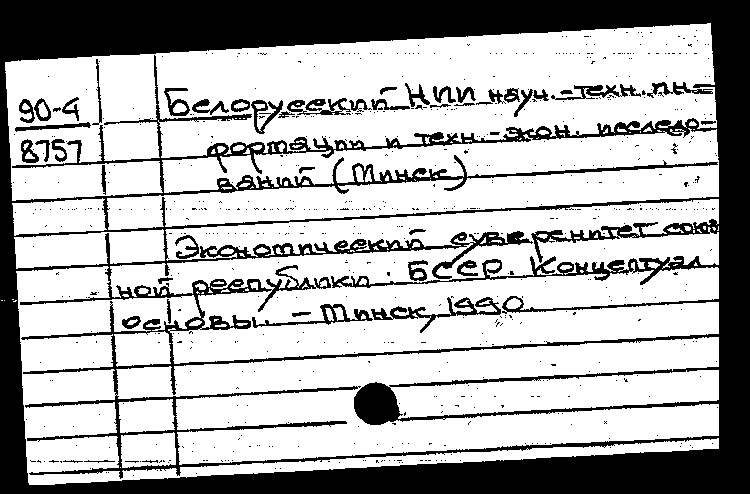 90-4
8757
Белорусский НИИ науч.-техн. ин=
формации и техн.-экон. исследо=
ваний (Минск).
Экономический суверенитет союз
ной республики: БССР. Концептуал.
основы. - Минск, 1990.